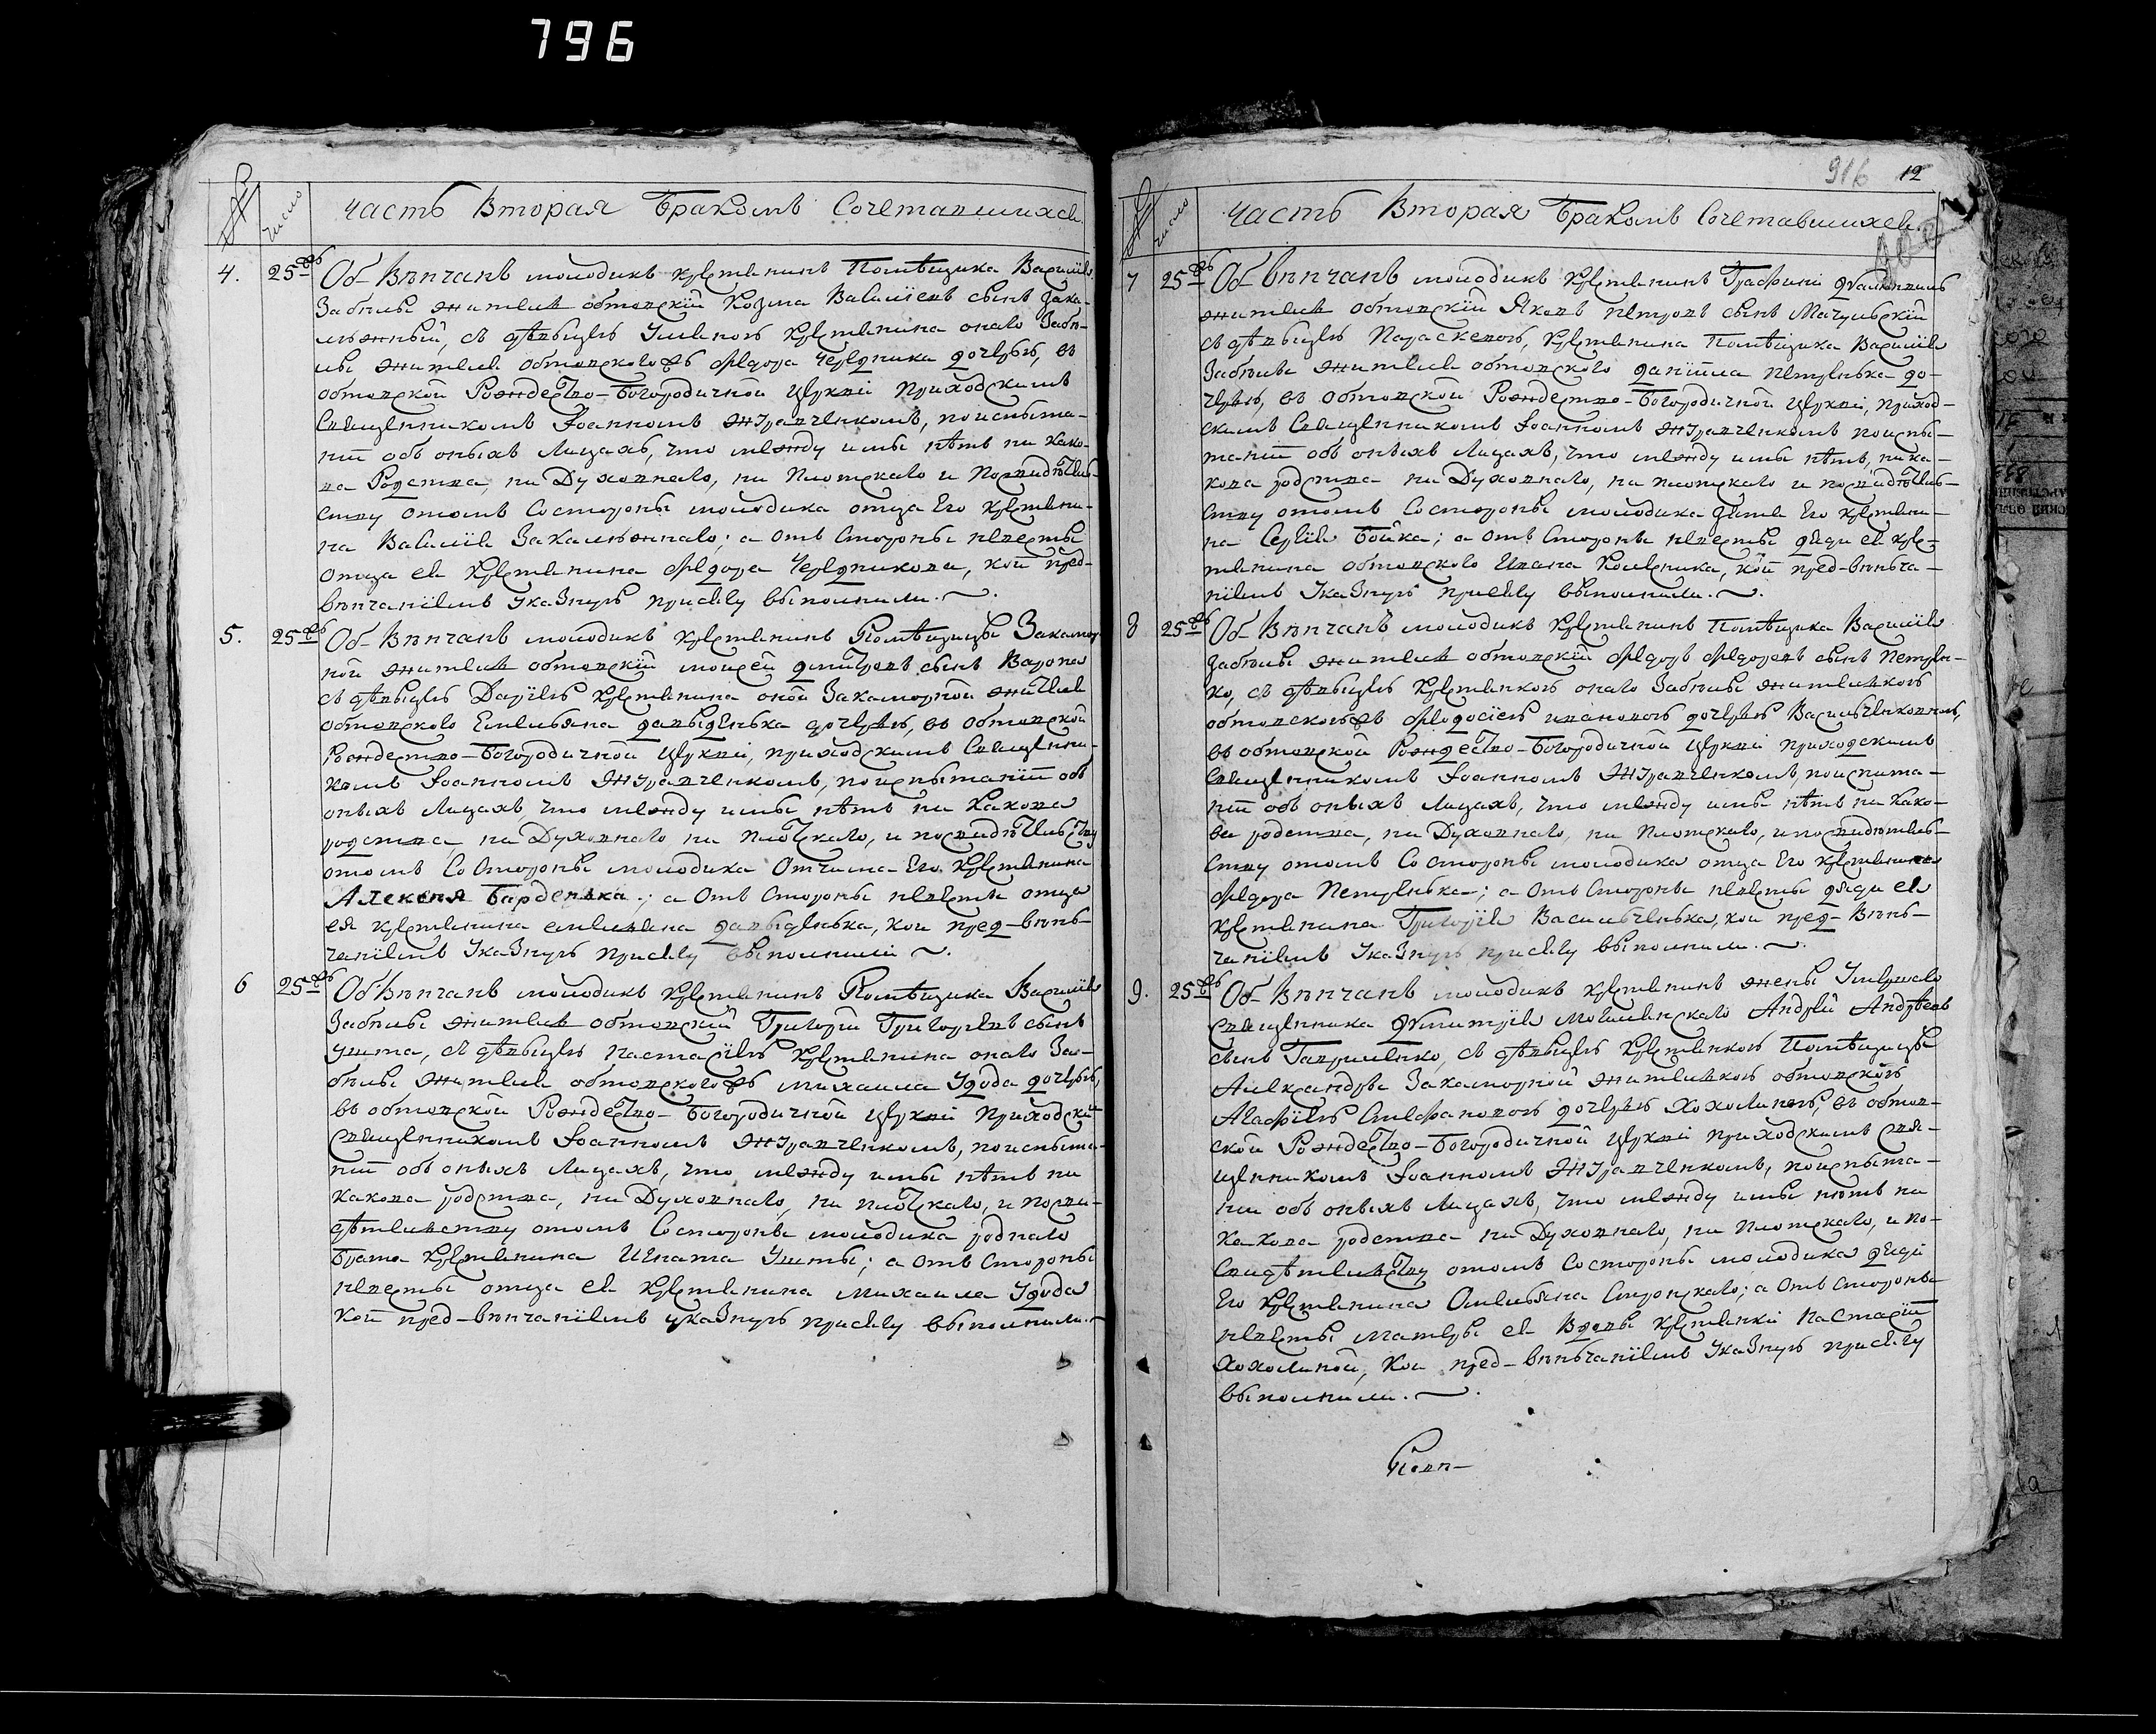 796
№
число
Часть Вторая Бракомъ Сочетавшихся
4. 25 Об-Вѣнчанъ молодикъ крестянинъ Помѣщика Василія
Забѣлы жителъ обтовскій Козма Василіевъ сынъ Зака-
лѣжный, съ дѣвицею Уляною крестянина онаго Забѣ-
лы жителя обтовского Федора Чередника дочерю, въ
обтовской Рождество-Богородичной Церкви Приходскимъ
Священникомъ Іоанномъ Журавченкомъ, по испыта-
ніи объ оныхъ Лицахъ, что между имы нѣтъ ни како-
ва Родства, ни Духовнаго, ни Плотскаго и Посвидѣтель-
ству отомъ Состороны молодика отца Его крестяни-
на Василія Закалѣжнаго; а отъ Стороны невѣсты
отца ея крестянина Федора Чередникова, кой пред-
вѣнчаніемъ Указную присягу выполнили.
5. 25 Об-Вѣнчанъ молодикъ крестянинъ Помѣщицы Закамор
ной жителъ обтовскій моисей дмитровъ сынъ Варона
съ дѣвицею Даріею крестянина оной Закаморной жителя
обтовского Емельяна давыденька дочерю, въ обтовской
Рождество-Богородичной Церкви, приходскимъ Священни-
комъ Іоанномъ Журавченкомъ, поиспытаніи объ
оныхъ Лицахъ, что между имы нѣтъ ни Какова
родства, ни Духовнаго ни плотскаго, и посвидѣтельству
отомъ Состороны молодика Отчима Его Крестянина
Алексея Барденька; а Отъ Стороны невесты отца
ея крестянина емеляна давыденька, кои пред-вѣнь-
чаніемъ Указную присягу выполнили
6 25 Об Вѣнчанъ молодикъ Крестянинъ Помѣщика Василія
Забѣлы жителъ обтовскій Григорій Григориевъ сынъ
Ушта, съ дѣвицею Настасіею Крестянина онаго За-
бѣлы жителя обтовского Михаила Удода дочерю,
въ обтовской Рождество-Богородичной Церкви Приходски
Священникомъ Іоанномъ Журавченкомъ, поиспыта-
ніи объ оныхъ Лицахъ, что между имы нѣтъ ни
какова родства, ни Духовнаго, ни плотскаго, и посви-
дѣтелъству отомъ Состороны молодика роднаго
брата Крестянина Игната Ушты; а отъ Стороны
невесты отца ея Крестянина Михаила Удода
кой пред-вѣнчаніемъ указную присягу выполнили.
916 12
№
число
Часть Вторая Бракомъ Сочетавшихся
7 25 Об-вѣнчанъ молодикъ Крестянинъ Графини
жителъ обтовскій Яковъ петровъ сынъ Мачульскій
съ дѣвицею Параскевою, Крестянина Помѣщика Василія
Забѣлы жителя обтовского даніила Петренька до-
черю, въ обтовской Рождество-Богородичной Церкви, приход-
скимъ Священникомъ Іоанномъ Журавченкомъ поиспы-
таніи объ оныхъ Лицахъ, что между имы нѣтъ, ника-
кова родства ни Духовнаго, ни плотскаго и посвидѣтель-
ству отомъ Состороны молодика зятя Его крестяни-
на Сергія Бойка; а отъ Стороны невесты дяди ея кре-
стянина обтовского Ивана Колесника, кой пред-вѣньча-
ніемъ Указную присягу выполнили.
8 25 Об-Вѣнчанъ молодикъ Крестянинъ Помѣщика Василія
забѣлы жителъ обтовскій Федоръ Федоровъ сынъ Петрен-
ко, съ дѣвицею Крестянкою онаго Забѣлы жителкою
обтовскою Феодосіею ивановою дочерю Василченковою,
въ обтовской Рождество-Богородичной Церкви приходскимъ
Священникомъ Іоанномъ Журавченкомъ, поиспита-
ніи объ оныхъ Лицахъ, что между имы нѣтъ ни како-
ва родства, ни Духовнаго, ни плотскаго, и посвидѣтель-
ству отомъ Состороны молодика отца Его крестянина
Федора Петренька; а Отъ Стороны невесты дяди ея
Крестянина Григорія Васильченька, кои пред-Вѣнь-
чаніемъ Указную присягу выполнили.
9. 25 Об-Вѣнчанъ молодикъ крестянинъ жены Умершаго
священника Дмитрія Могилянскаго Андрей Андрѣевъ
сынъ Гавриленко, съ дѣвицею Крестянкою Помѣщицы
Александры Закаморной жителкою обтовскою
Агафіею Стефановою дочерю Хохолиною, въ обтов-
ской Рождество-Богородичной Церкви приходскимъ свя-
щенникомъ Іоанномъ Журавченкомъ, поиспыта-
ніи объ оныхъ Лицахъ, что между имы нѣтъ ни
какова родства ни Духовнаго, ни плотскаго, и по-
свидѣтелъству отомъ Состороны молодика дяди
Его Крестянина Омельяна Стровскаго; а отъ Стороны
невесты матеры ея Вдовы крестянки Настасіи
Хохолиной, Кои пред-вѣньчаніемъ Указную присягу
выполнили.